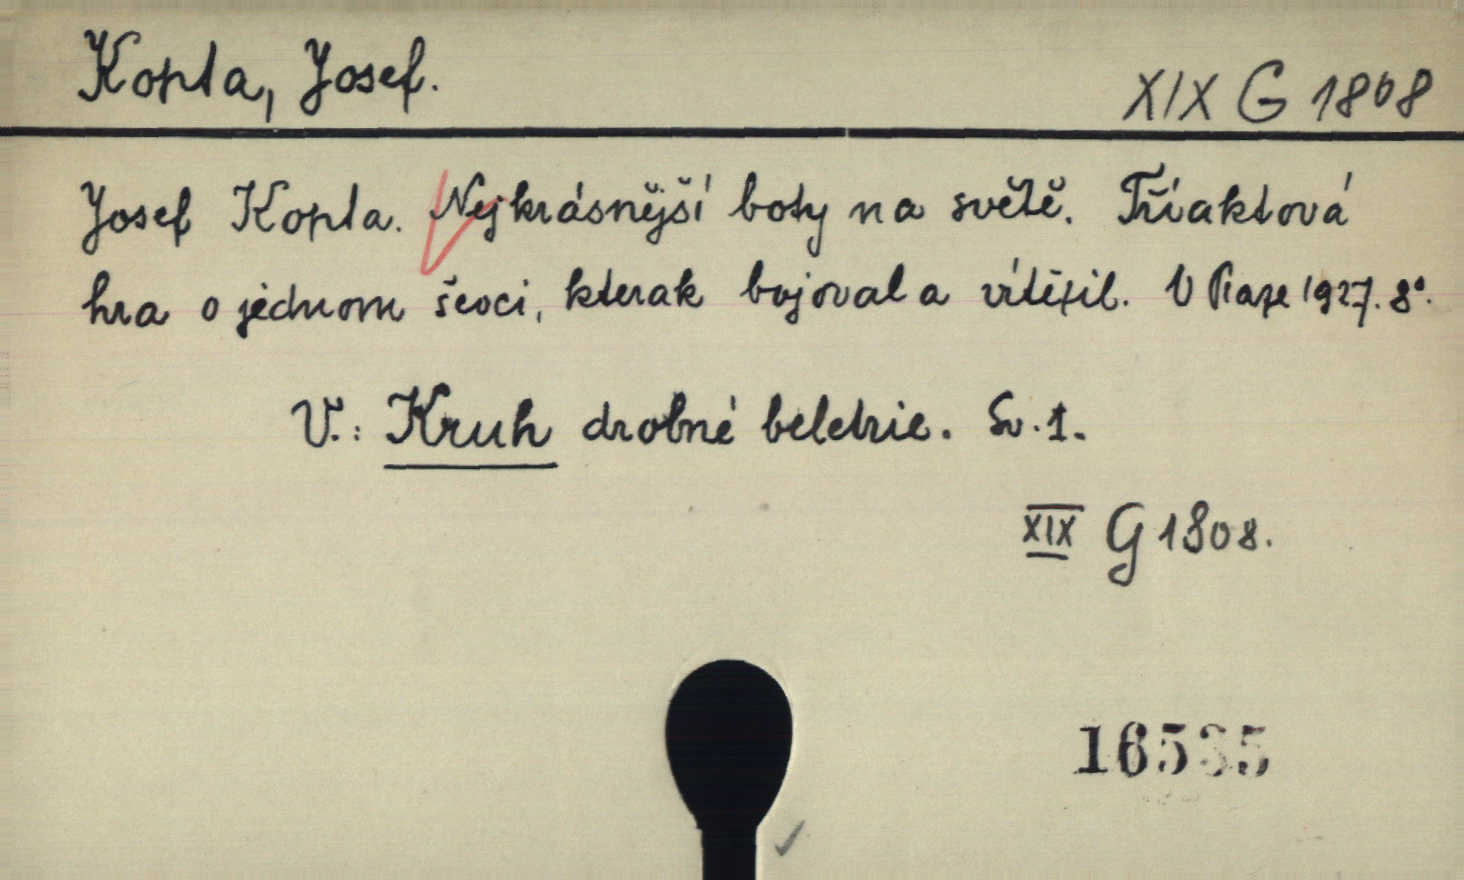 Kopta, Josef.
XIX G 1808
Josef Kopta. Nejkrásnější boty na světě. Tříaktová
hra o jednom ševci, kterak bojoval a vítězil. V Praze 1927. 8°.
V.: Kruh drobné beletrie. Sv. 1.
XIX G 1808.
16535